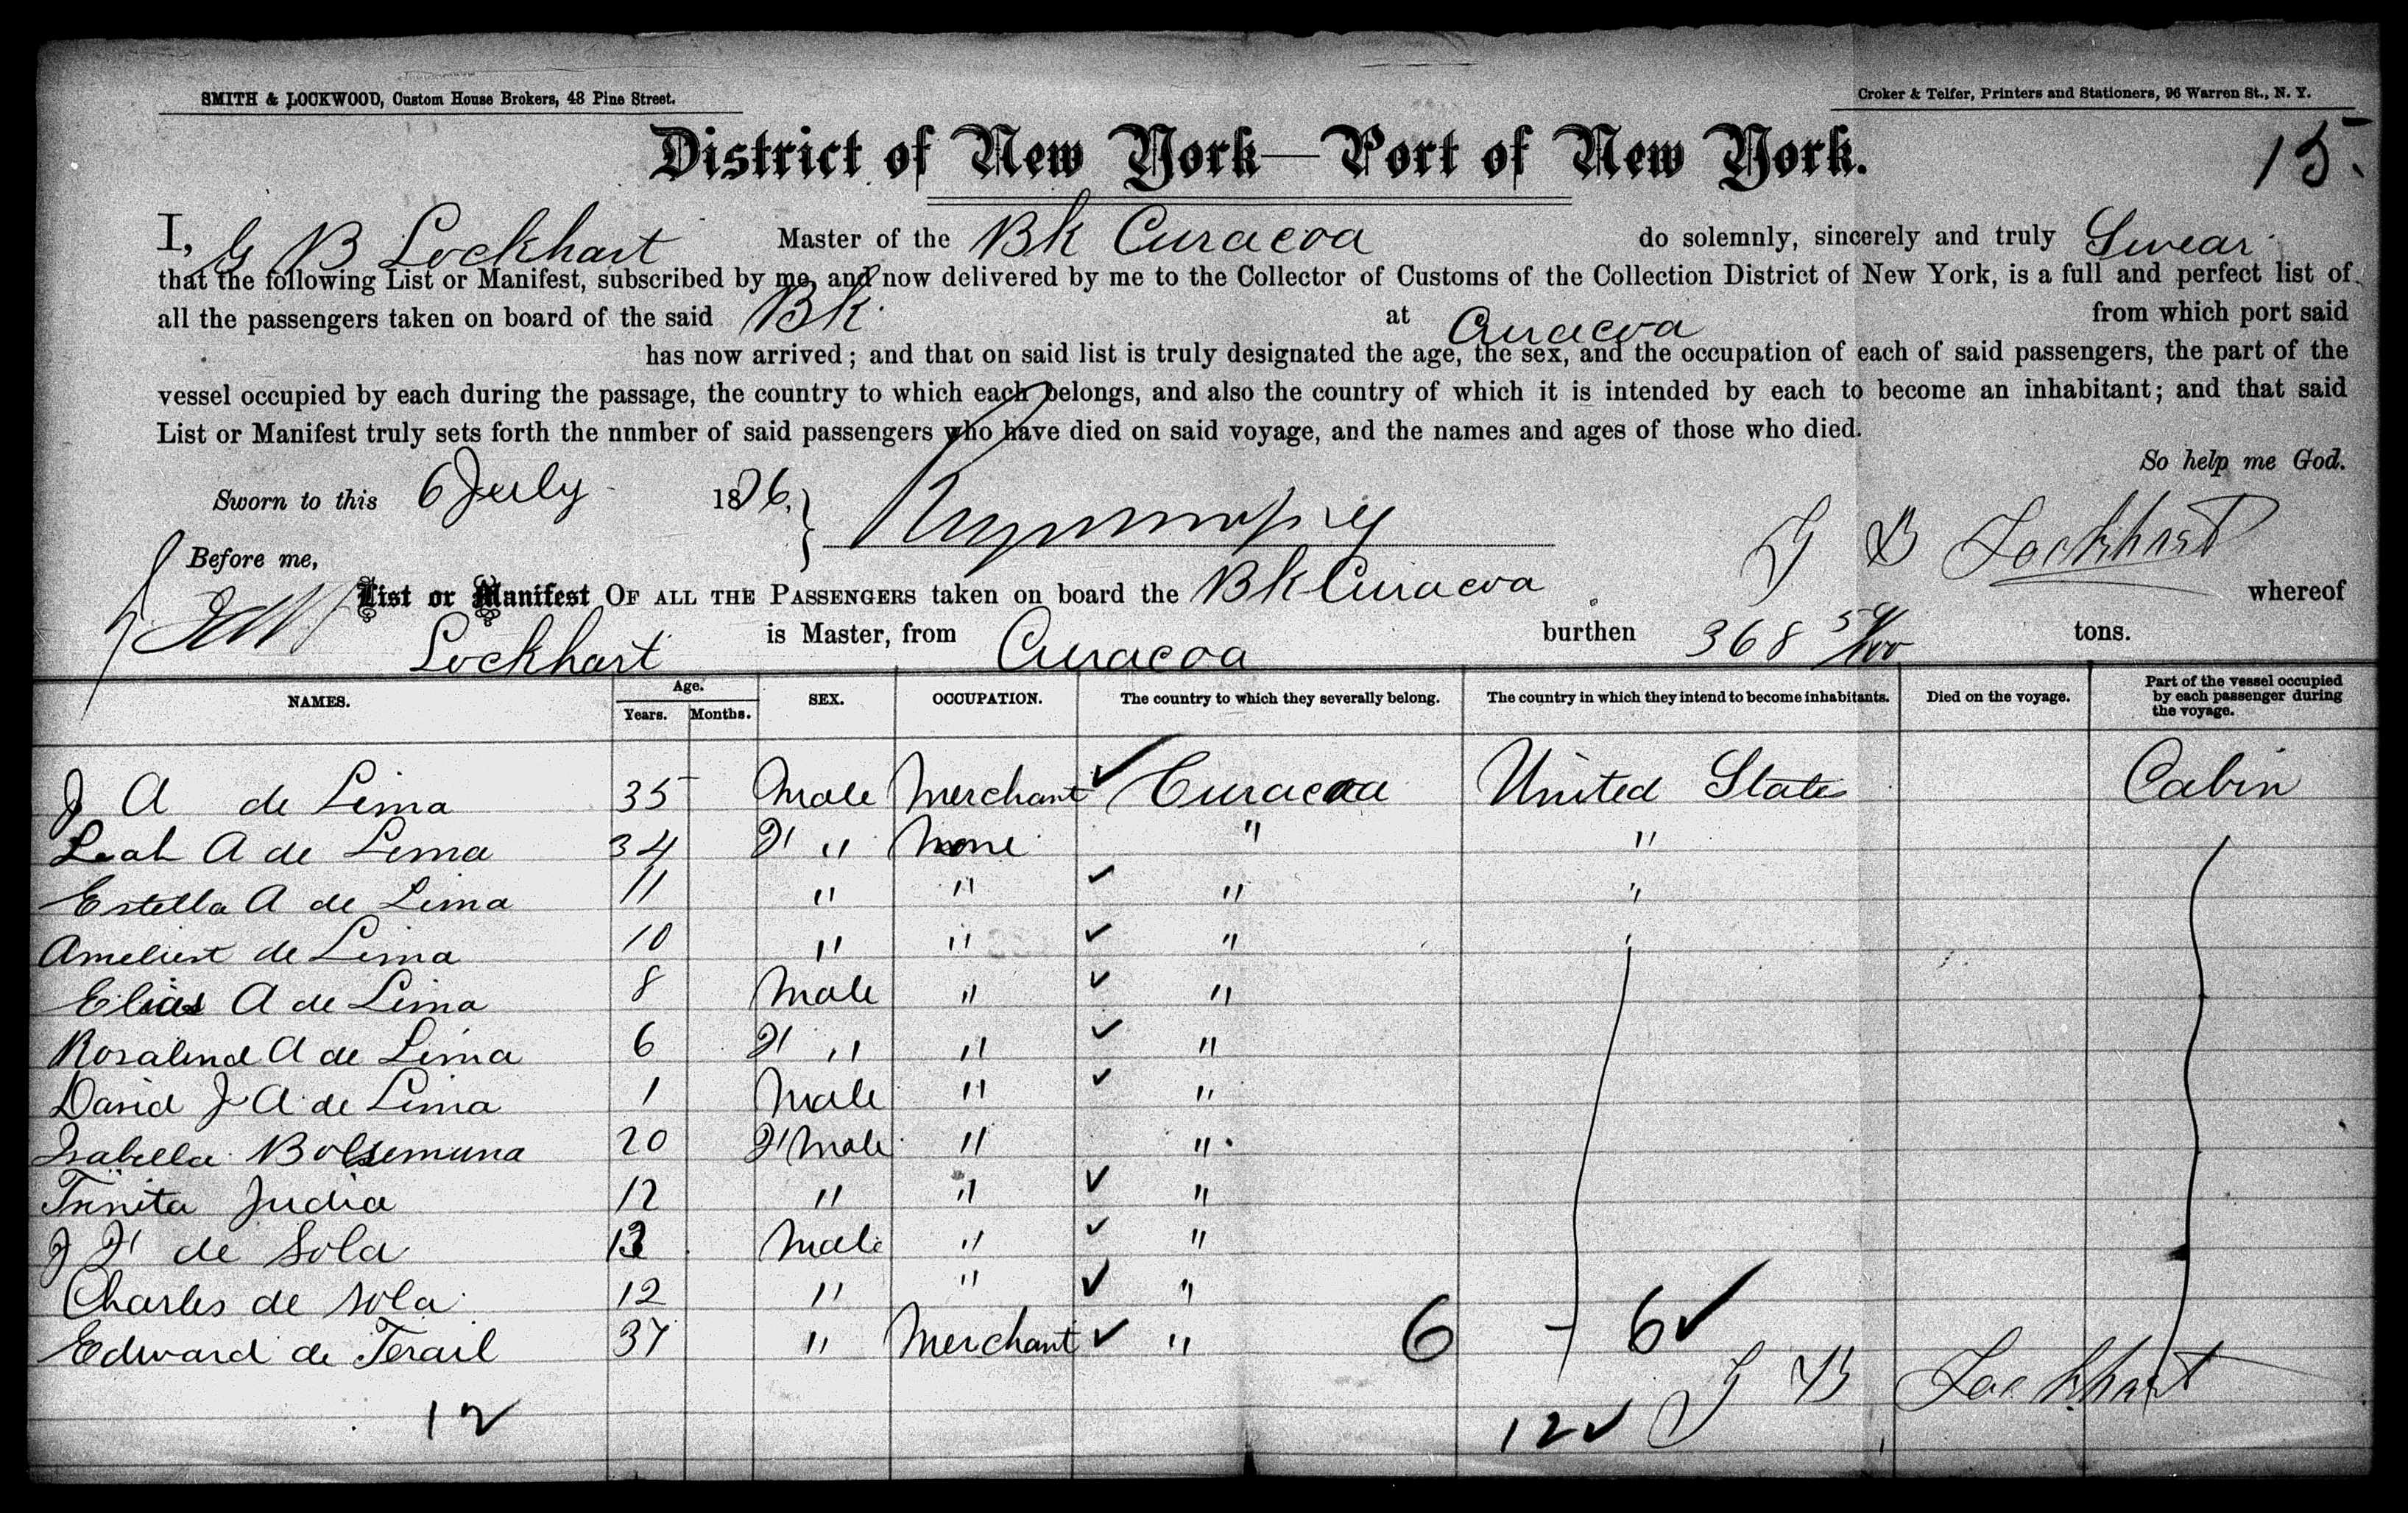 SMITH & LOCKWOOD, Custom House Brokers, 48 Pine Street.
Croker & Telfer, Printers and Stationers, 96 Warren St., N. Y.
District of New York—Port of New York.
15.
I, G B Lockhart Master of the Bk Curacoa do solemnly, sincerely and truly Swear
that the following List or Manifest, subscribed by me, and now delivered by me to the Collector of Customs of the Collection District of New York, is a full and perfect list of
all the passengers taken on board of the said Bk at Curacoa from which port said
has now arrived; and that on said list is truly designated the age, the sex, and the occupation of each of said passengers, the part of the
vessel occupied by each during the passage, the country to which each belongs, and also the country of which it is intended by each to become an inhabitant; and that said
List or Manifest truly sets forth the nnmber of said passengers who have died on said voyage, and the names and ages of those who died.
So help me God.
Sworn to this 6 July 1876.
G B Lockhart
Before me,
List or Manifest OF ALL THE PASSENGERS taken on board the Bk Curacoa whereof
Lockhart is Master, from Curacoa burthen 368 54/100 tons.
NAMES. Age. Years. Months. SEX. OCCUPATION. The country to which they severally belong. The country in which they intend to become inhabitants. Died on the voyage. Part of the vessel occupied by each passenger during the voyage.
J A de Lima 35 Male Merchant ✓ Curacoa United State Cabin
Leah A de Lima 34 F " None " "
Estella A de Lima 11 " " ✓ " "
de Lima 10 " " ✓ " "
Elias A de Lima 8 Male " ✓ "
Rosalind A de Lima 6 F " " ✓ "
David J A de Lima 1 Male " ✓ "
Isabella 20 F Male " "
Trinita Judia 12 " " ✓ "
J F de Sola 13 Male " ✓ "
Charles de Sola 12 " " ✓ "
Edward de Terail 37 " Merchant ✓ " 6 - 6 ✓
12 12 ✓ G B Lockhart